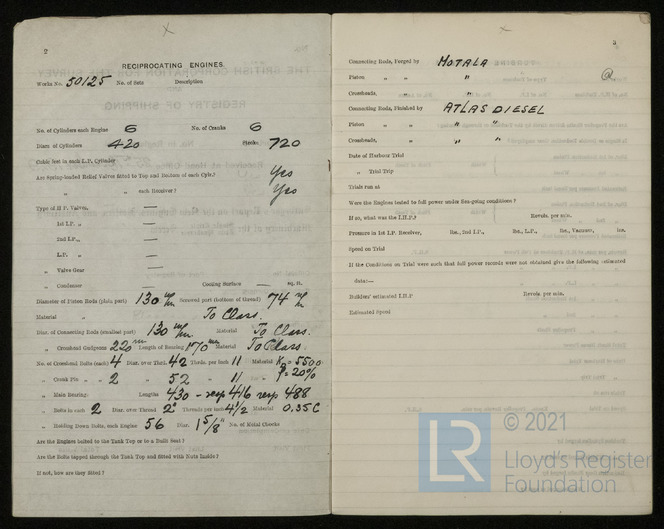 2
RECIPROCATING ENGINES.
Works No. 50125 No. of Sets Description
No. of Cylinders each Engine 6 No. of Cranks 6
Diars of Cylinders 420 Stroke 720
Cubic feet in each L.P. Cylinder
Are Spring-loaded Relief Valves fitted to Top and Bottom of each Cylr.? Yes
„ „ each Receiver? Yes
Type of H P. Valves, —
1st I.P. „ —
2nd I.P. „ —
L.P. „ —
„ Valve Gear
„ Condenser Cooling Surface — sq. ft.
Diameter of Piston Rods (plain part) 130 m/m Screwed part (bottom of thread) 74 m/m
Material To Class.
Diar. of Connecting Rods (smallest part) 130 m/m Material To Class.
„ Crosshead Gudgeons 220 m Length of Bearing 170 m Material To Class.
No. of Crosshead Bolts (each) 4 Diar. over Thrd. 42 Thrds. per inch 11 Material Kz = 5500
„ Crank Pin „ „ 2 „ 52 „ 11 „ = 20%
„ Main Bearings Lengths 430 - resp 416 resp 488
„ Bolts in each 2 Diar. over Thread 2" Threads per inch 4½ Material 0.35 C
„ Holding Down Bolts, each Engine 56 Diar. 1 5/8" No. of Metal Chocks
Are the Engines bolted to the Tank Top or to a Built Seat?
Are the Bolts tapped through the Tank Top and fitted with Nuts Inside?
If not, how are they fitted?
3
Connecting Rods, Forged by MOTALA
Piston „ „ „
Crossheads, „
Connecting Rods, Finished by ATLAS DIESEL
Piston „ „ „ „
Crossheads, „ „ „
Date of Harbour Trial
„ Trial Trip
Trials run at
Were the Engines tested to full power under Sea-going conditions?
If so, what was the I.H.P.? Revols. per min.
Pressure in 1st I.P. Receiver, lbs., 2nd I.P., lbs., L.P., lbs., Vacuum, ins.
Speed on Trial
If the Conditions on Trial were such that full power records were not obtained give the following estimated
data:—
Builders' estimated I.H.P. Revols. per min.
Estimated Speed
LR
© 2021
Lloyd's Register
Foundation